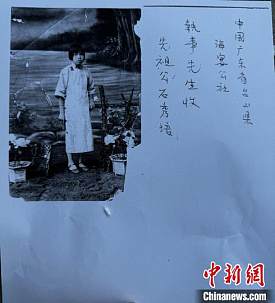 中国广东省台山县
海宴公社
執事先生收
先祖公石秀
中新网
Chinanews.com